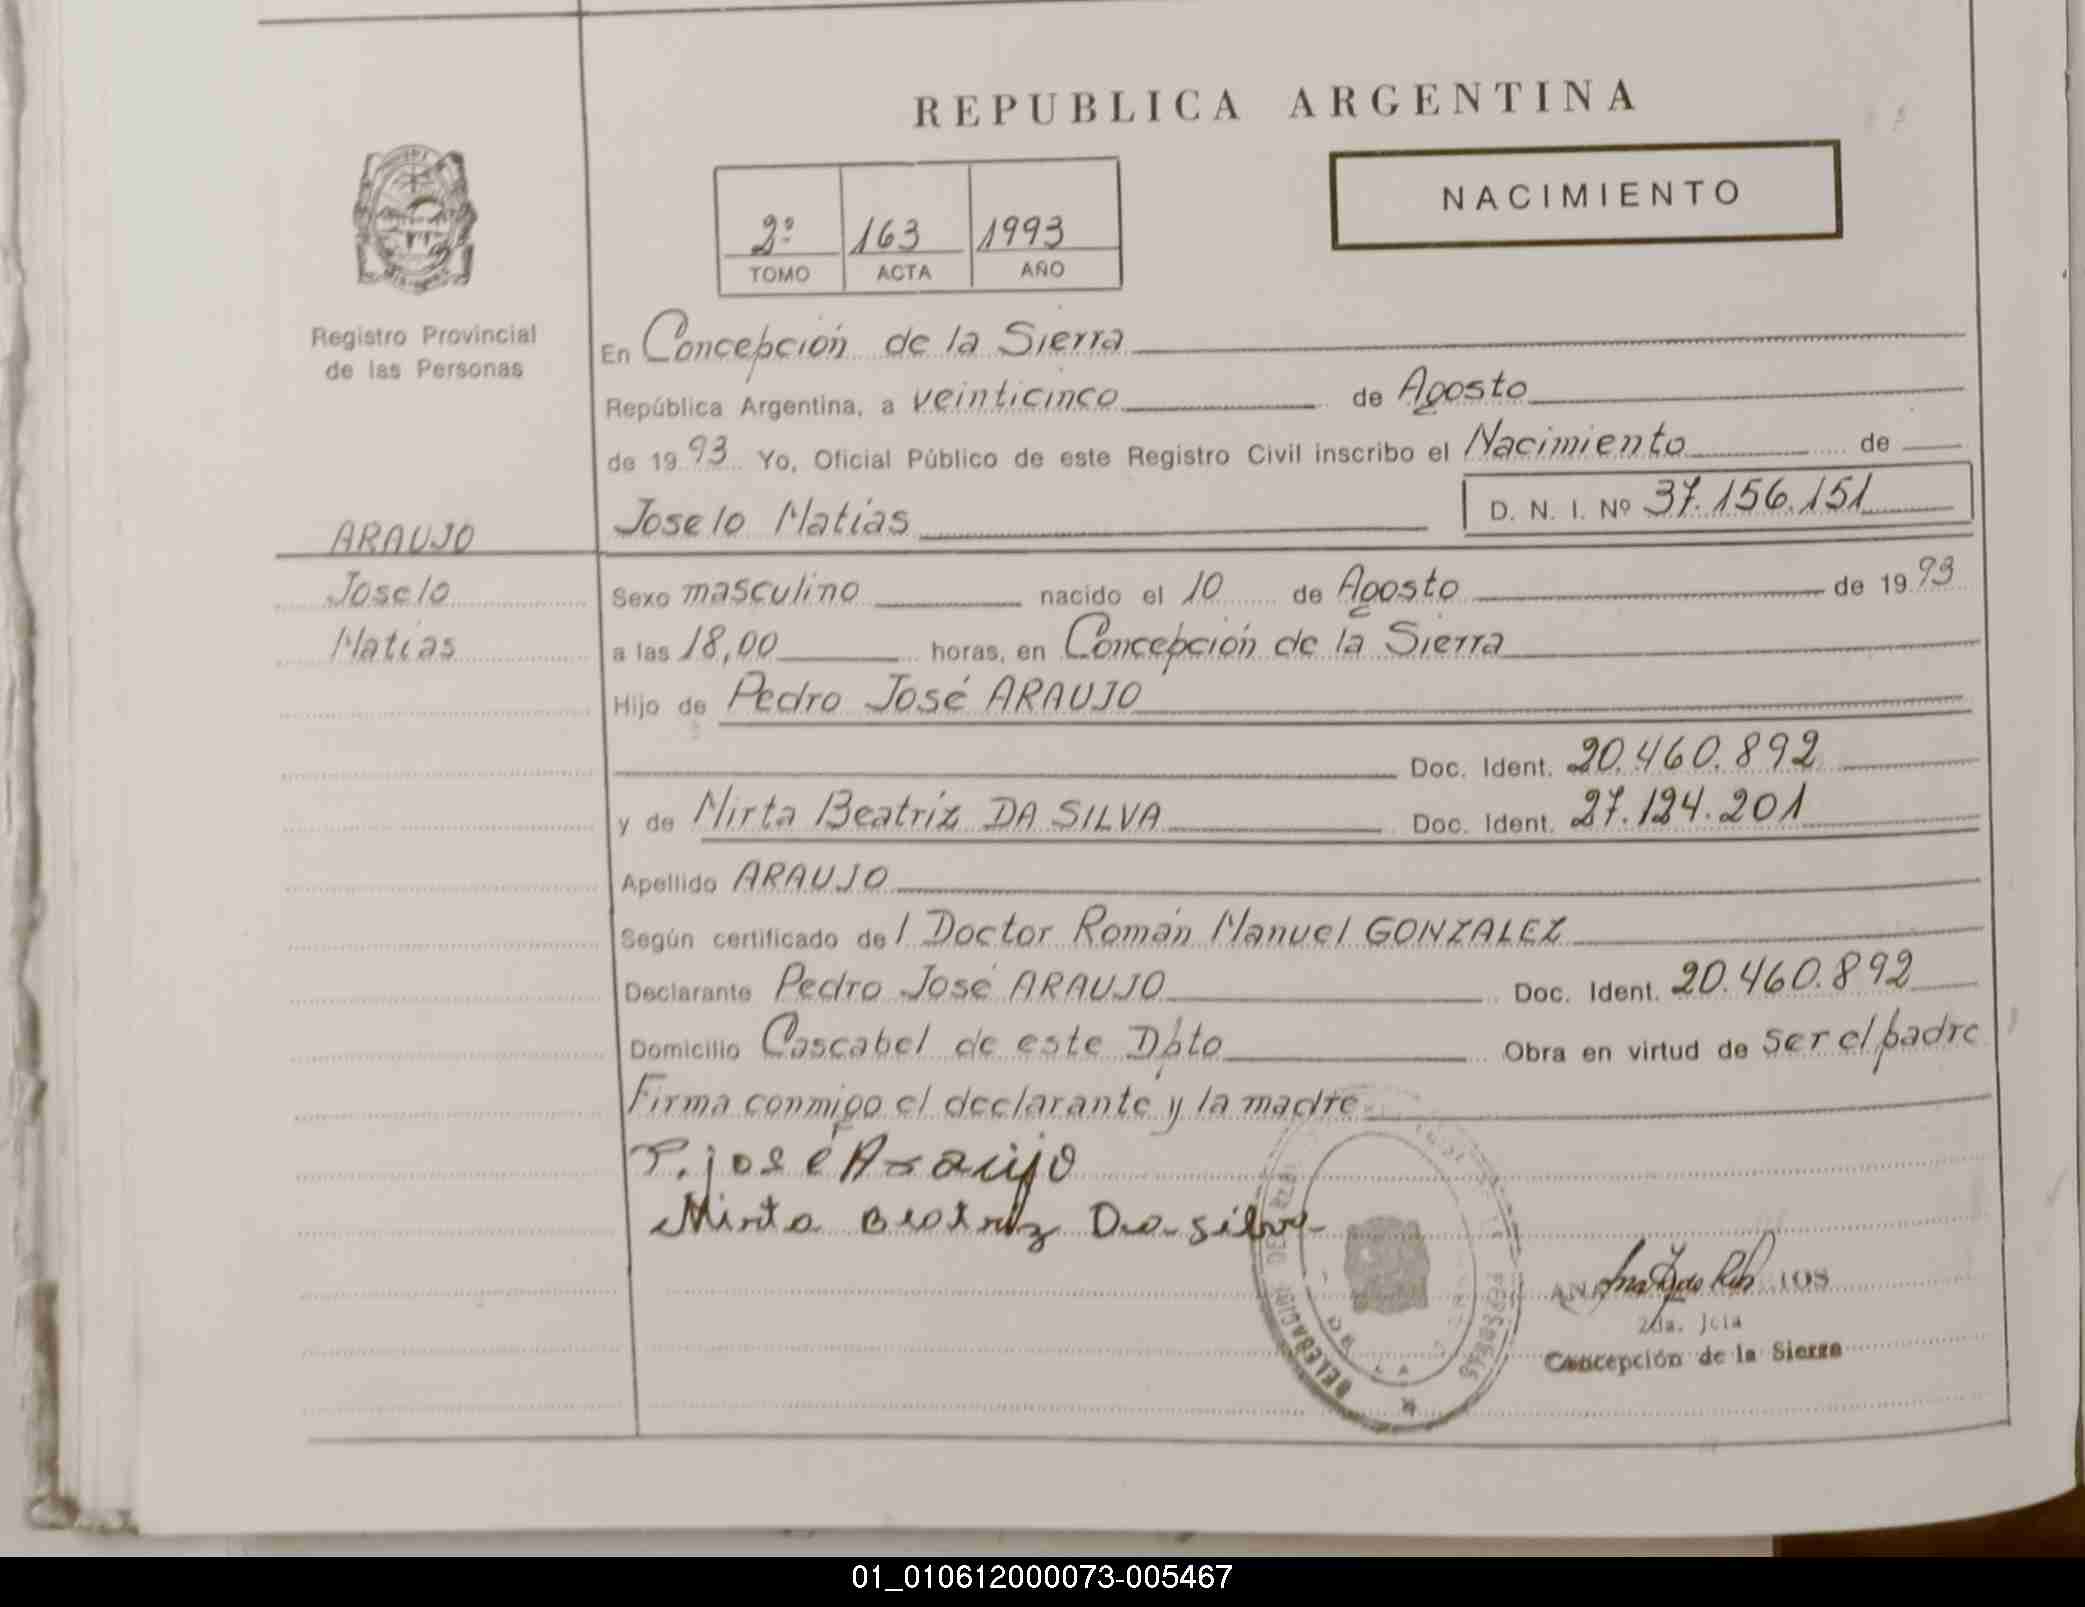 REPUBLICA ARGENTINA
NACIMIENTO
2º 163 1993
TOMO ACTA AÑO
Registro Provincial
de las Personas
En Concepción de la Sierra
República Argentina, a veinticinco de Agosto
de 1993 Yo, Oficial Público de este Registro Civil inscribo el Nacimiento de
Joselo Matías D. N. I. Nº 37.156.151
ARAUJO
Joselo
Matías
Sexo masculino nacido el 10 de Agosto de 1993
a las 18,00 horas, en Concepción de la Sierra
Hijo de Pedro José ARAUJO
Doc. Ident. 20.460.892
y de Mirta Beatríz DA SILVA Doc. Ident. 27.124.201
Apellido ARAUJO
Según certificado del Doctor Román Manuel GONZALEZ
Declarante Pedro José ARAUJO Doc. Ident. 20.460.892
Domicilio Cascabel de este Dpto Obra en virtud de ser el padre
Firma conmigo el declarante y la madre
P. josé Araujo
Mirta Beatriz Da silva
2da. Jcia
Concepción de la Sierra
01_010612000073-005467